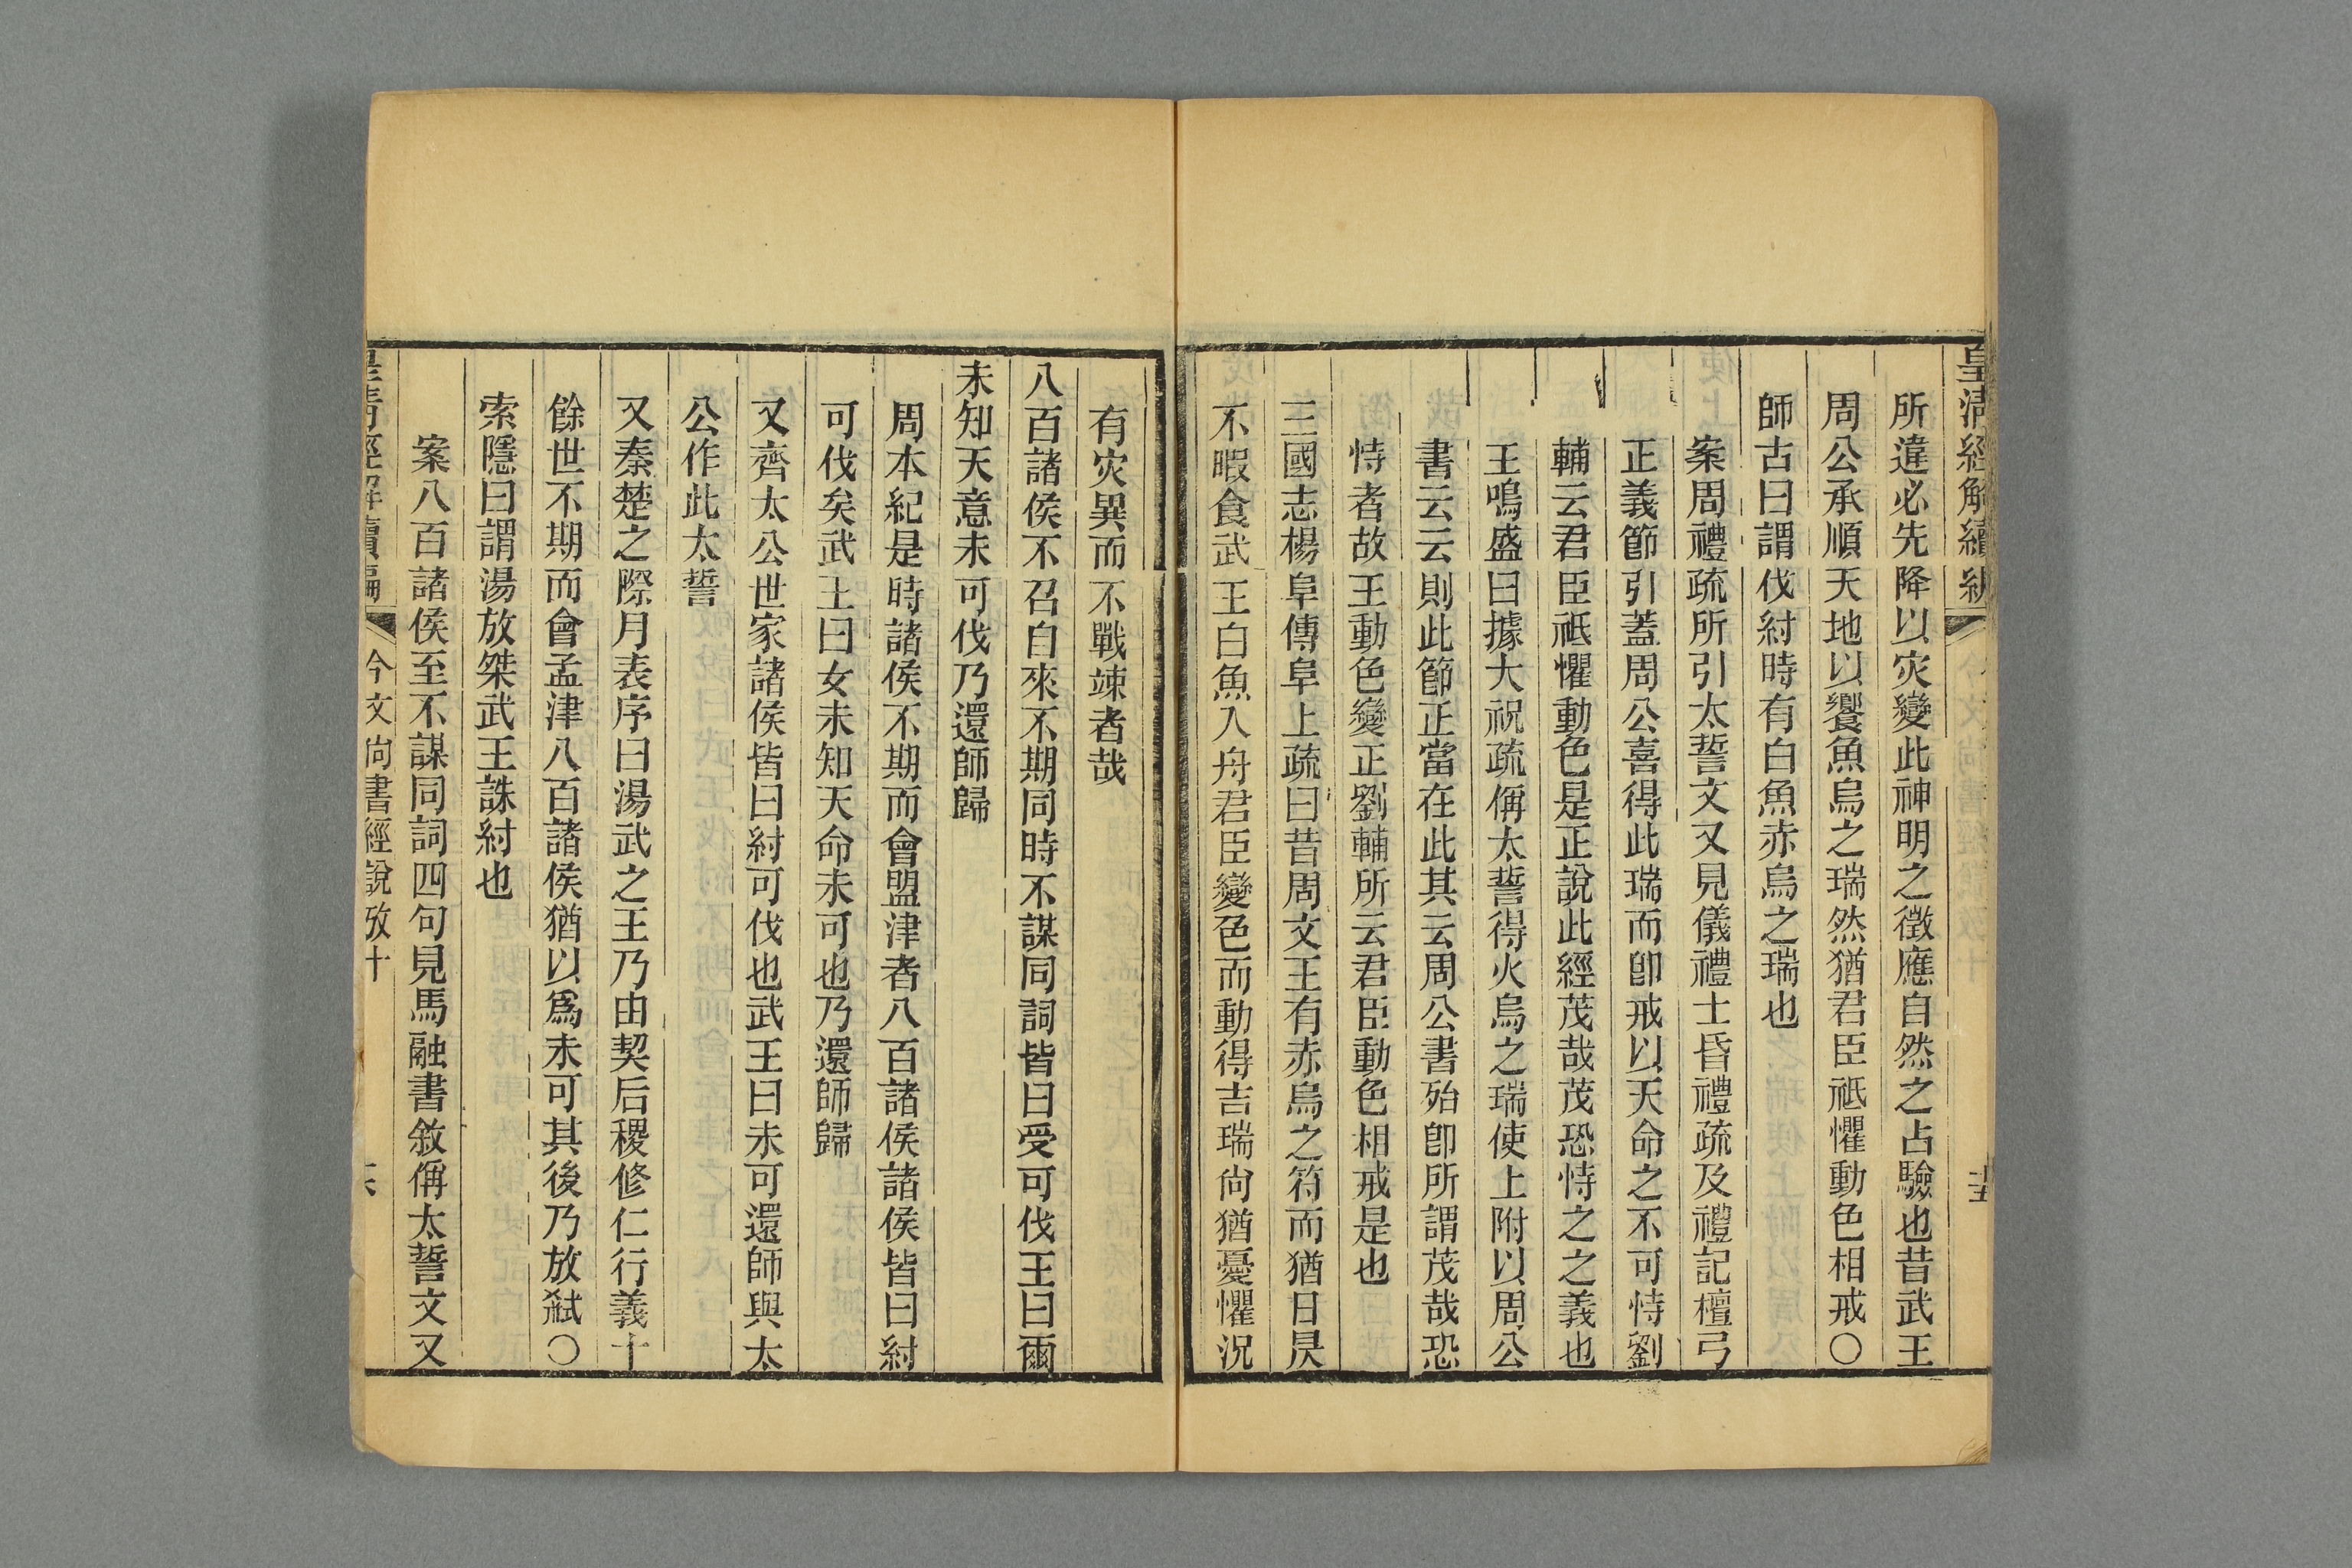 皇清經解續編
十五
所違必先降以灾變此神明之徵應自然之占驗也昔武王
周公承順天地以饗魚烏之瑞然猶君臣祗懼動色相戒〇
師古曰謂伐紂時有白魚赤烏之瑞也
案周禮疏所引太誓文又見儀禮士昏禮疏及禮記檀弓
正義節引蓋周公喜得此瑞而卽戒以天命之不可恃劉
輔云君臣祗懼動色是正說此經茂哉茂哉恐恃之之義也
王鳴盛曰據大祝疏偁太誓得火烏之瑞使上附以周公
書云云則此節正當在此其云周公書殆卽所謂茂哉恐
恃者故王動色變正劉輔所云君臣動色相戒是也
三國志楊阜傳阜上疏曰昔周文王有赤烏之符而猶日昃
不暇食武王白魚入舟君臣變色而動得吉瑞尙猶憂懼況
有灾異而不戰竦者哉
八百諸侯不召自來不期同時不謀同詞皆曰受可伐王曰爾
未知天意未可伐乃還師歸
周本紀是時諸侯不期而會盟津者八百諸侯諸侯皆曰紂
可伐矣武王曰女未知天命未可也乃還師歸
又齊太公世家諸侯皆曰紂可伐也武王曰未可還師與太
公作此太誓
又秦楚之際月表序曰湯武之王乃由契后稷修仁行義十
餘世不期而會孟津八百諸侯猶以爲未可其後乃放弑〇
索隱曰謂湯放桀武王誅紂也
案八百諸侯至不謀同詞四句見馬融書敘偁太誓文又
皇清經解續編
今文尙書經說攷十